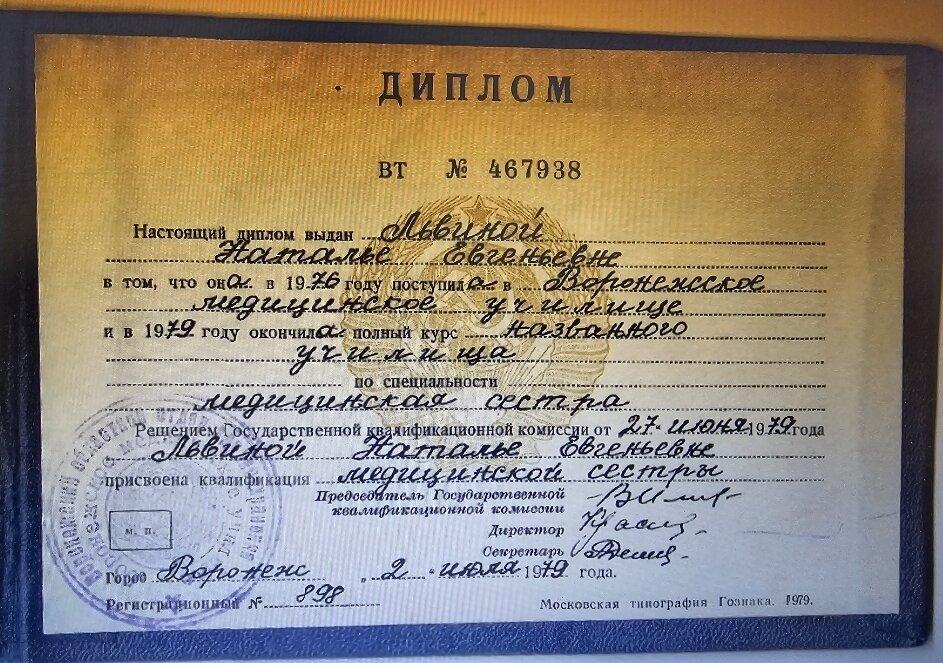 ДИПЛОМ
ВТ № 467938
Настоящий диплом выдан Львиной
Наталье Евгеньевне
в том, что она в 1976 году поступила в Воронежское
медицинское училище
и в 1979 году окончила полный курс названного
училища
по специальности
медицинская сестра
Решением Государственной квалификационной комиссии от 27 июня 1979 года
Львиной Наталье Евгеньевне
присвоена квалификация медицинской сестры
Председатель Государственной
квалификационной комиссии
Директор
Секретарь
м. п.
Город Воронеж „2" июля 1979 года.
Регистрационный № 898
Московская типография Гознака. 1979.